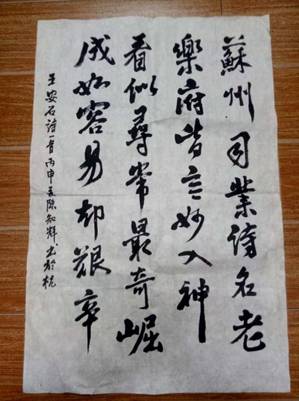 蘇州司業詩名老
樂府皆言妙入神
看似尋常最奇崛
成如容易却艱辛
王安石詩一首丙申夏陈知辉书於杭